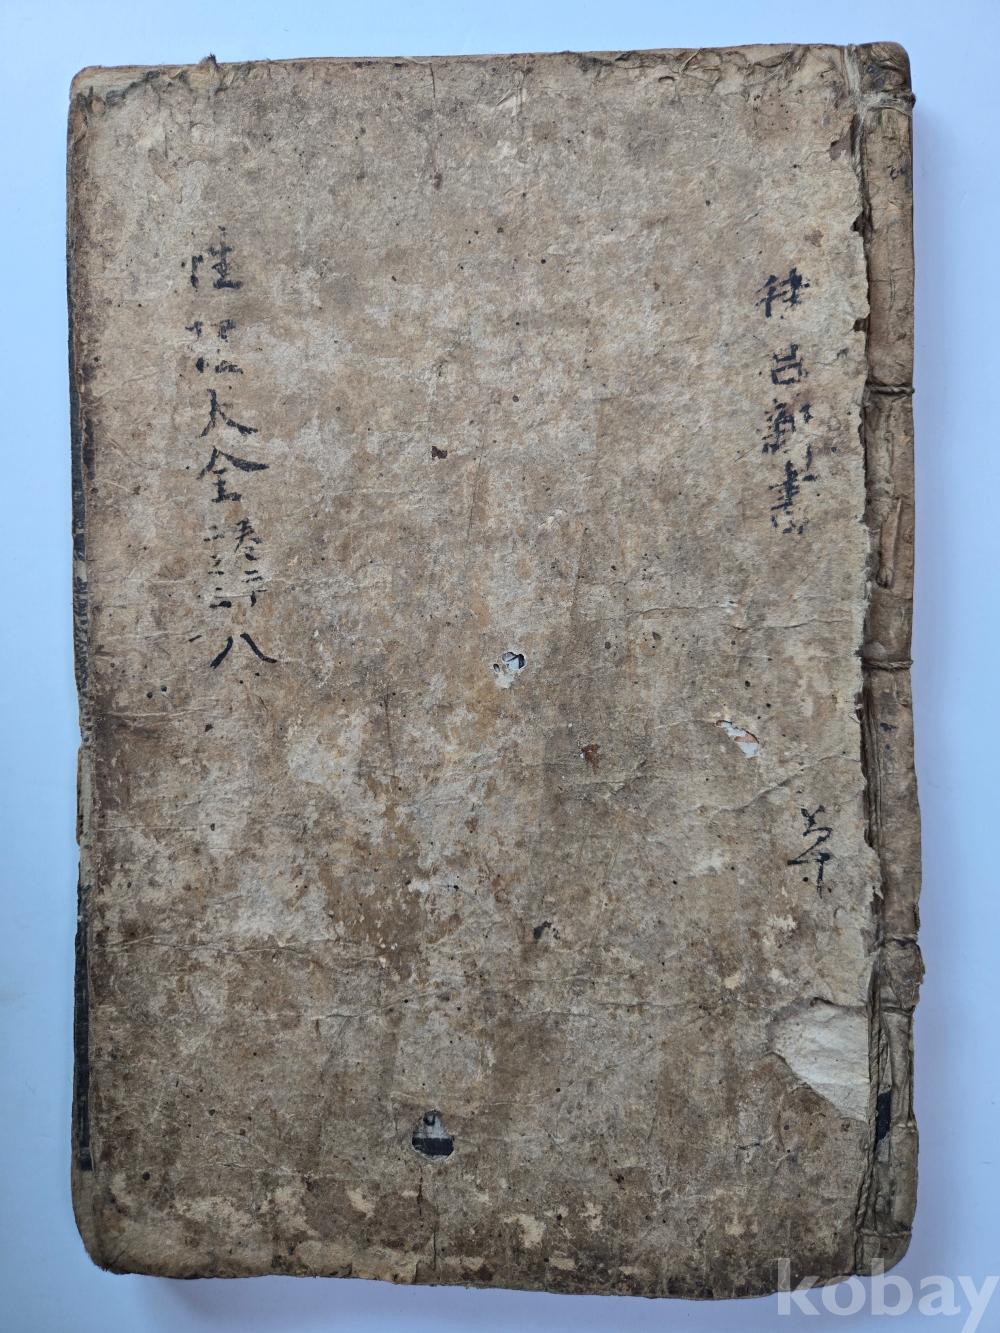 律呂新書
性理大全 卷二十
二之三
八
kobay